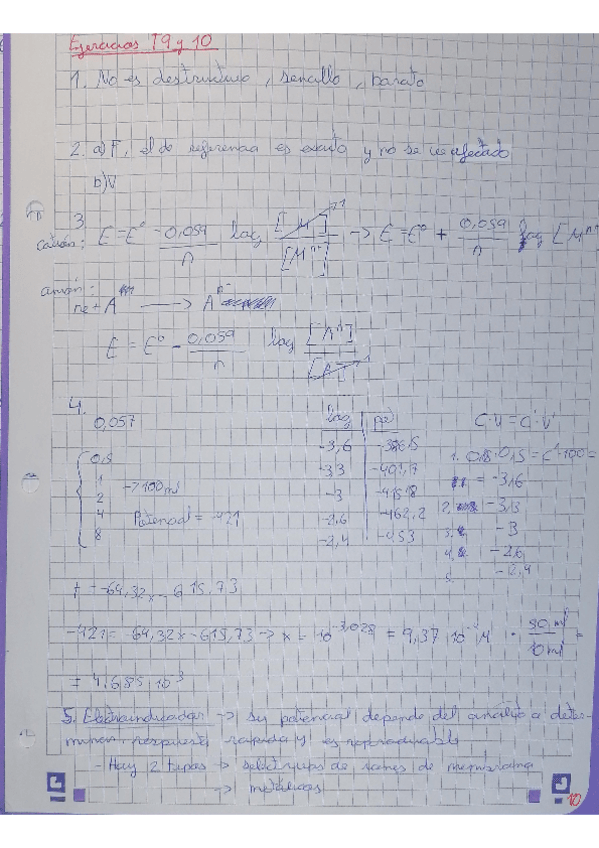 Ejercicios T9 y 10
1. No es destructivo, sencillo, barato
2. a) F, el de referencia es exacto y no se ve afectado
b) V
3.
catión: E = E° - 0,059/n log [M]/[Mⁿ⁺] → E = E° + 0,059/n log [Mⁿ⁺
anión:
ne + A → Aⁿ⁻
E = E° - 0,059/n log [Aⁿ⁻]/[A]
4.
0,057 log C·V = C'·V'
0,5 -3,6 1. 0,5·0,15 = C'·100 =
1 → 100 ml -3,3 = -3,6
2 -3 2. -3,3
4 Potencial = -421 -2,6 -462,2 3. -3
8 -2,4 -453 4. -2,6
5. -2,4
y = -64,32x - 615,73
-421 = -64,32x - 615,73 → x = 10^-3,028 = 9,37·10⁻⁴ M · 50 ml/10 ml =
= 4,685·10⁻³
5. Electroindicador → su potencial depende del analito a deter-
minar respuesta rápida y es reproducible
- Hay 2 tipos → selectivos de iones de membrana
→ metálicos
10